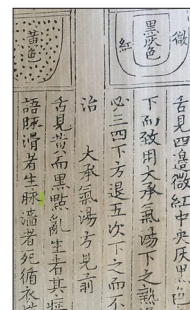 微
黑灰色
紅
黃色
舌見四邊微紅中央灰黑色
下而致用大承氣湯下之熱
必三四下方退五次下之而不
治　大承氣湯方見前
舌見黃而黑點亂生者其症
語脉滑者生脉濇者死循衣